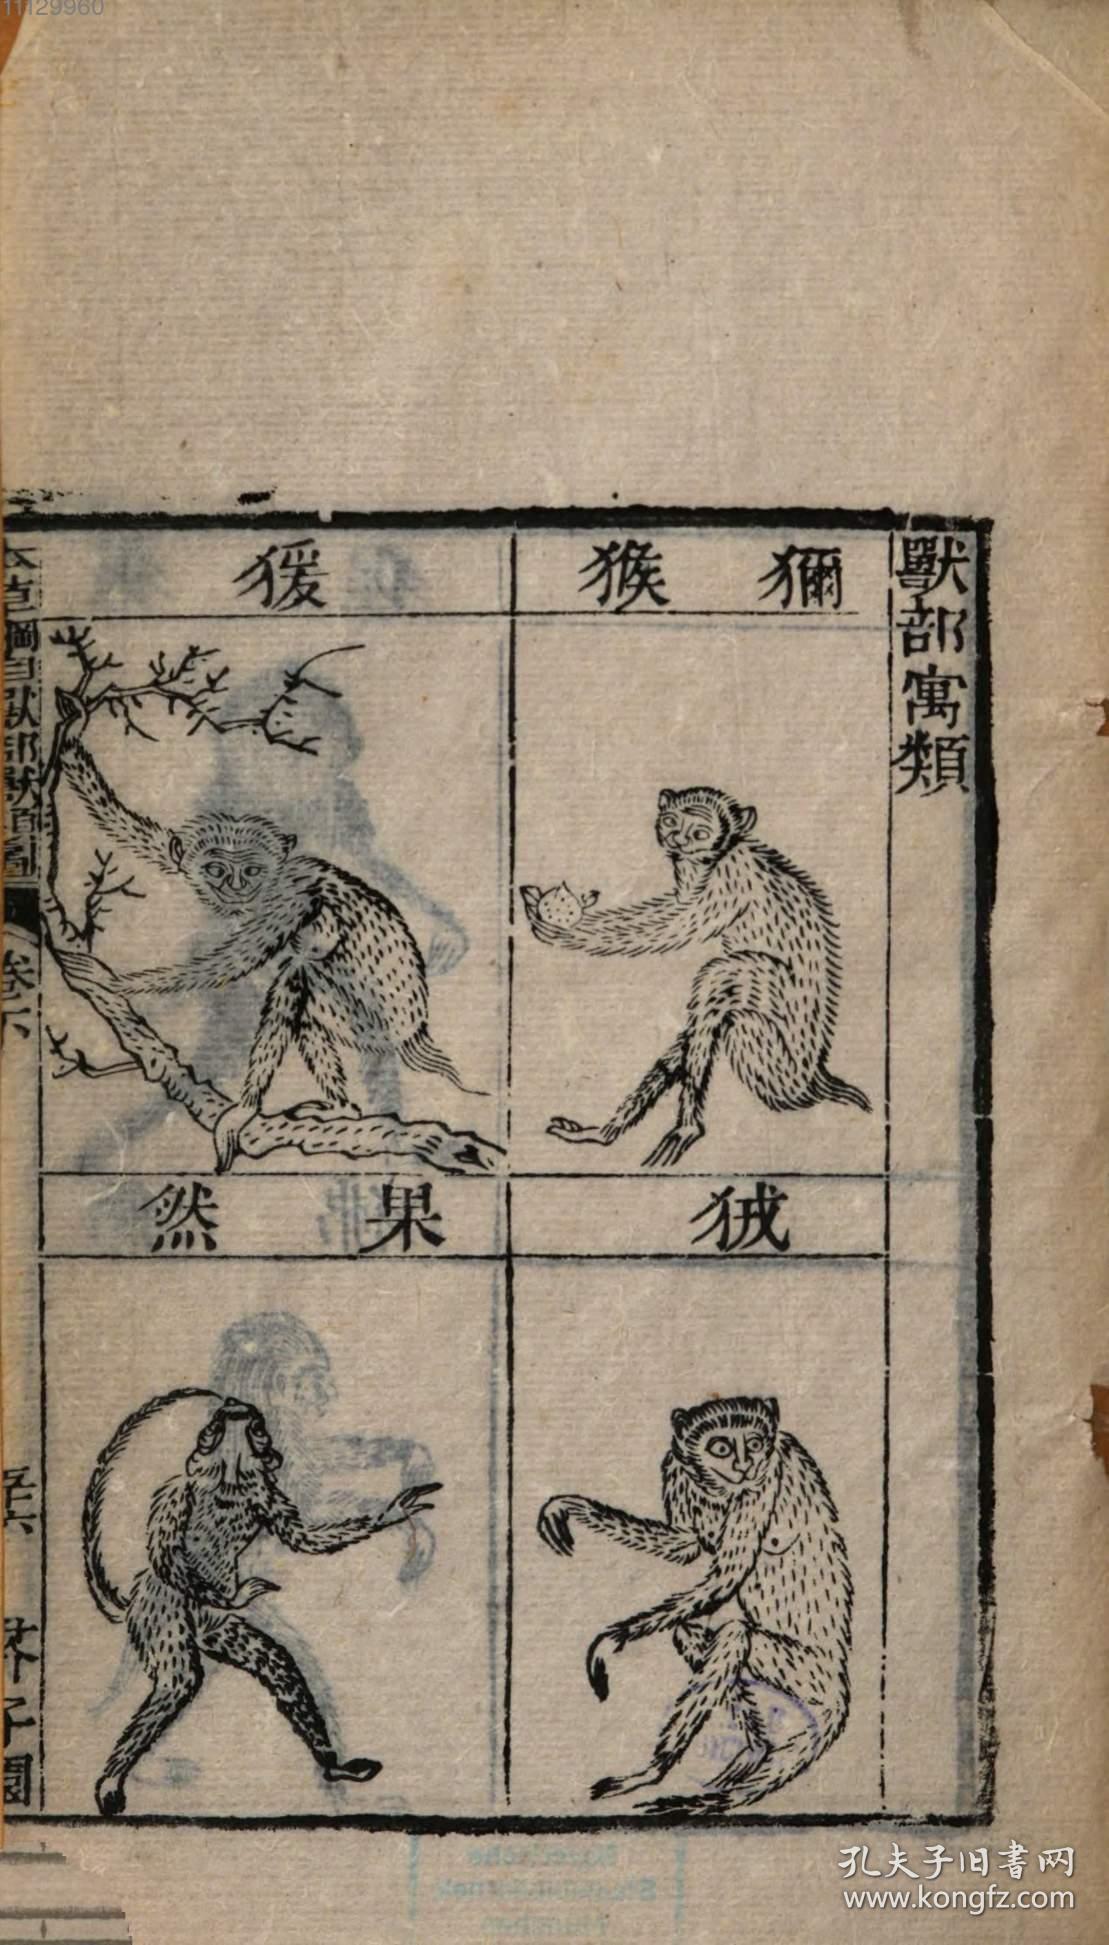 11129960
獸部寓類
獼猴
猨
狨
果然
本草綱目獸部獸類圖
卷下
五六
芥子園
孔夫子旧書网
www.kongfz.com